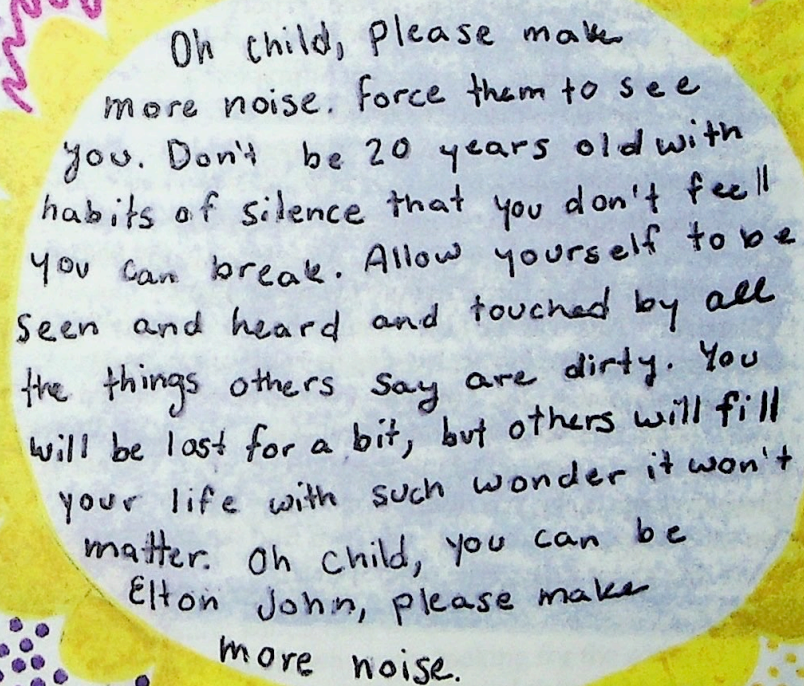 Oh child, please make
more noise. Force them to see
you. Don't be 20 years old with
habits of silence that you don't feell
you can break. Allow yourself to be
seen and heard and touched by all
the things others say are dirty. You
will be lost for a bit, but others will fill
your life with such wonder it won't
matter. Oh child, you can be
Elton John, please make
more noise.